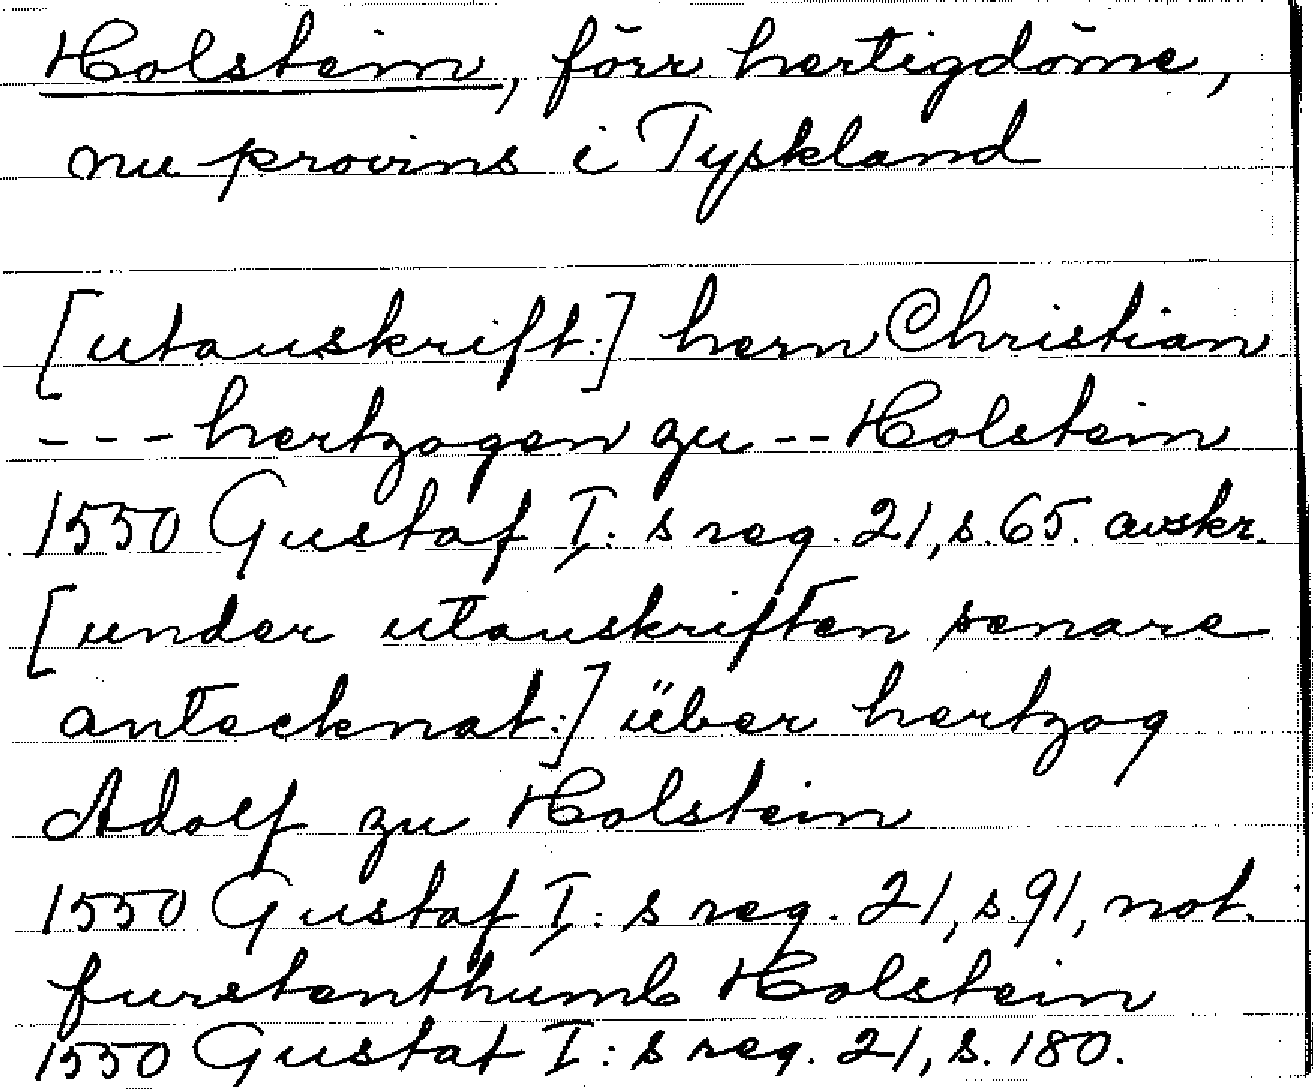 Holstein, förr hertigdöme,
nu provins i Tyskland
[utanskrift:] hern Christian
--- hertzogen zu -- Holstein
1550 Gustaf I: s reg. 21, s. 65. avskr.
[under utanskriften senare
antecknat:] über hertzog
Adolf zu Holstein
1550 Gustaf I: s reg. 21, s. 91, not.
furstenthumb Holstein
1550 Gustaf I: s reg. 21, s. 180.